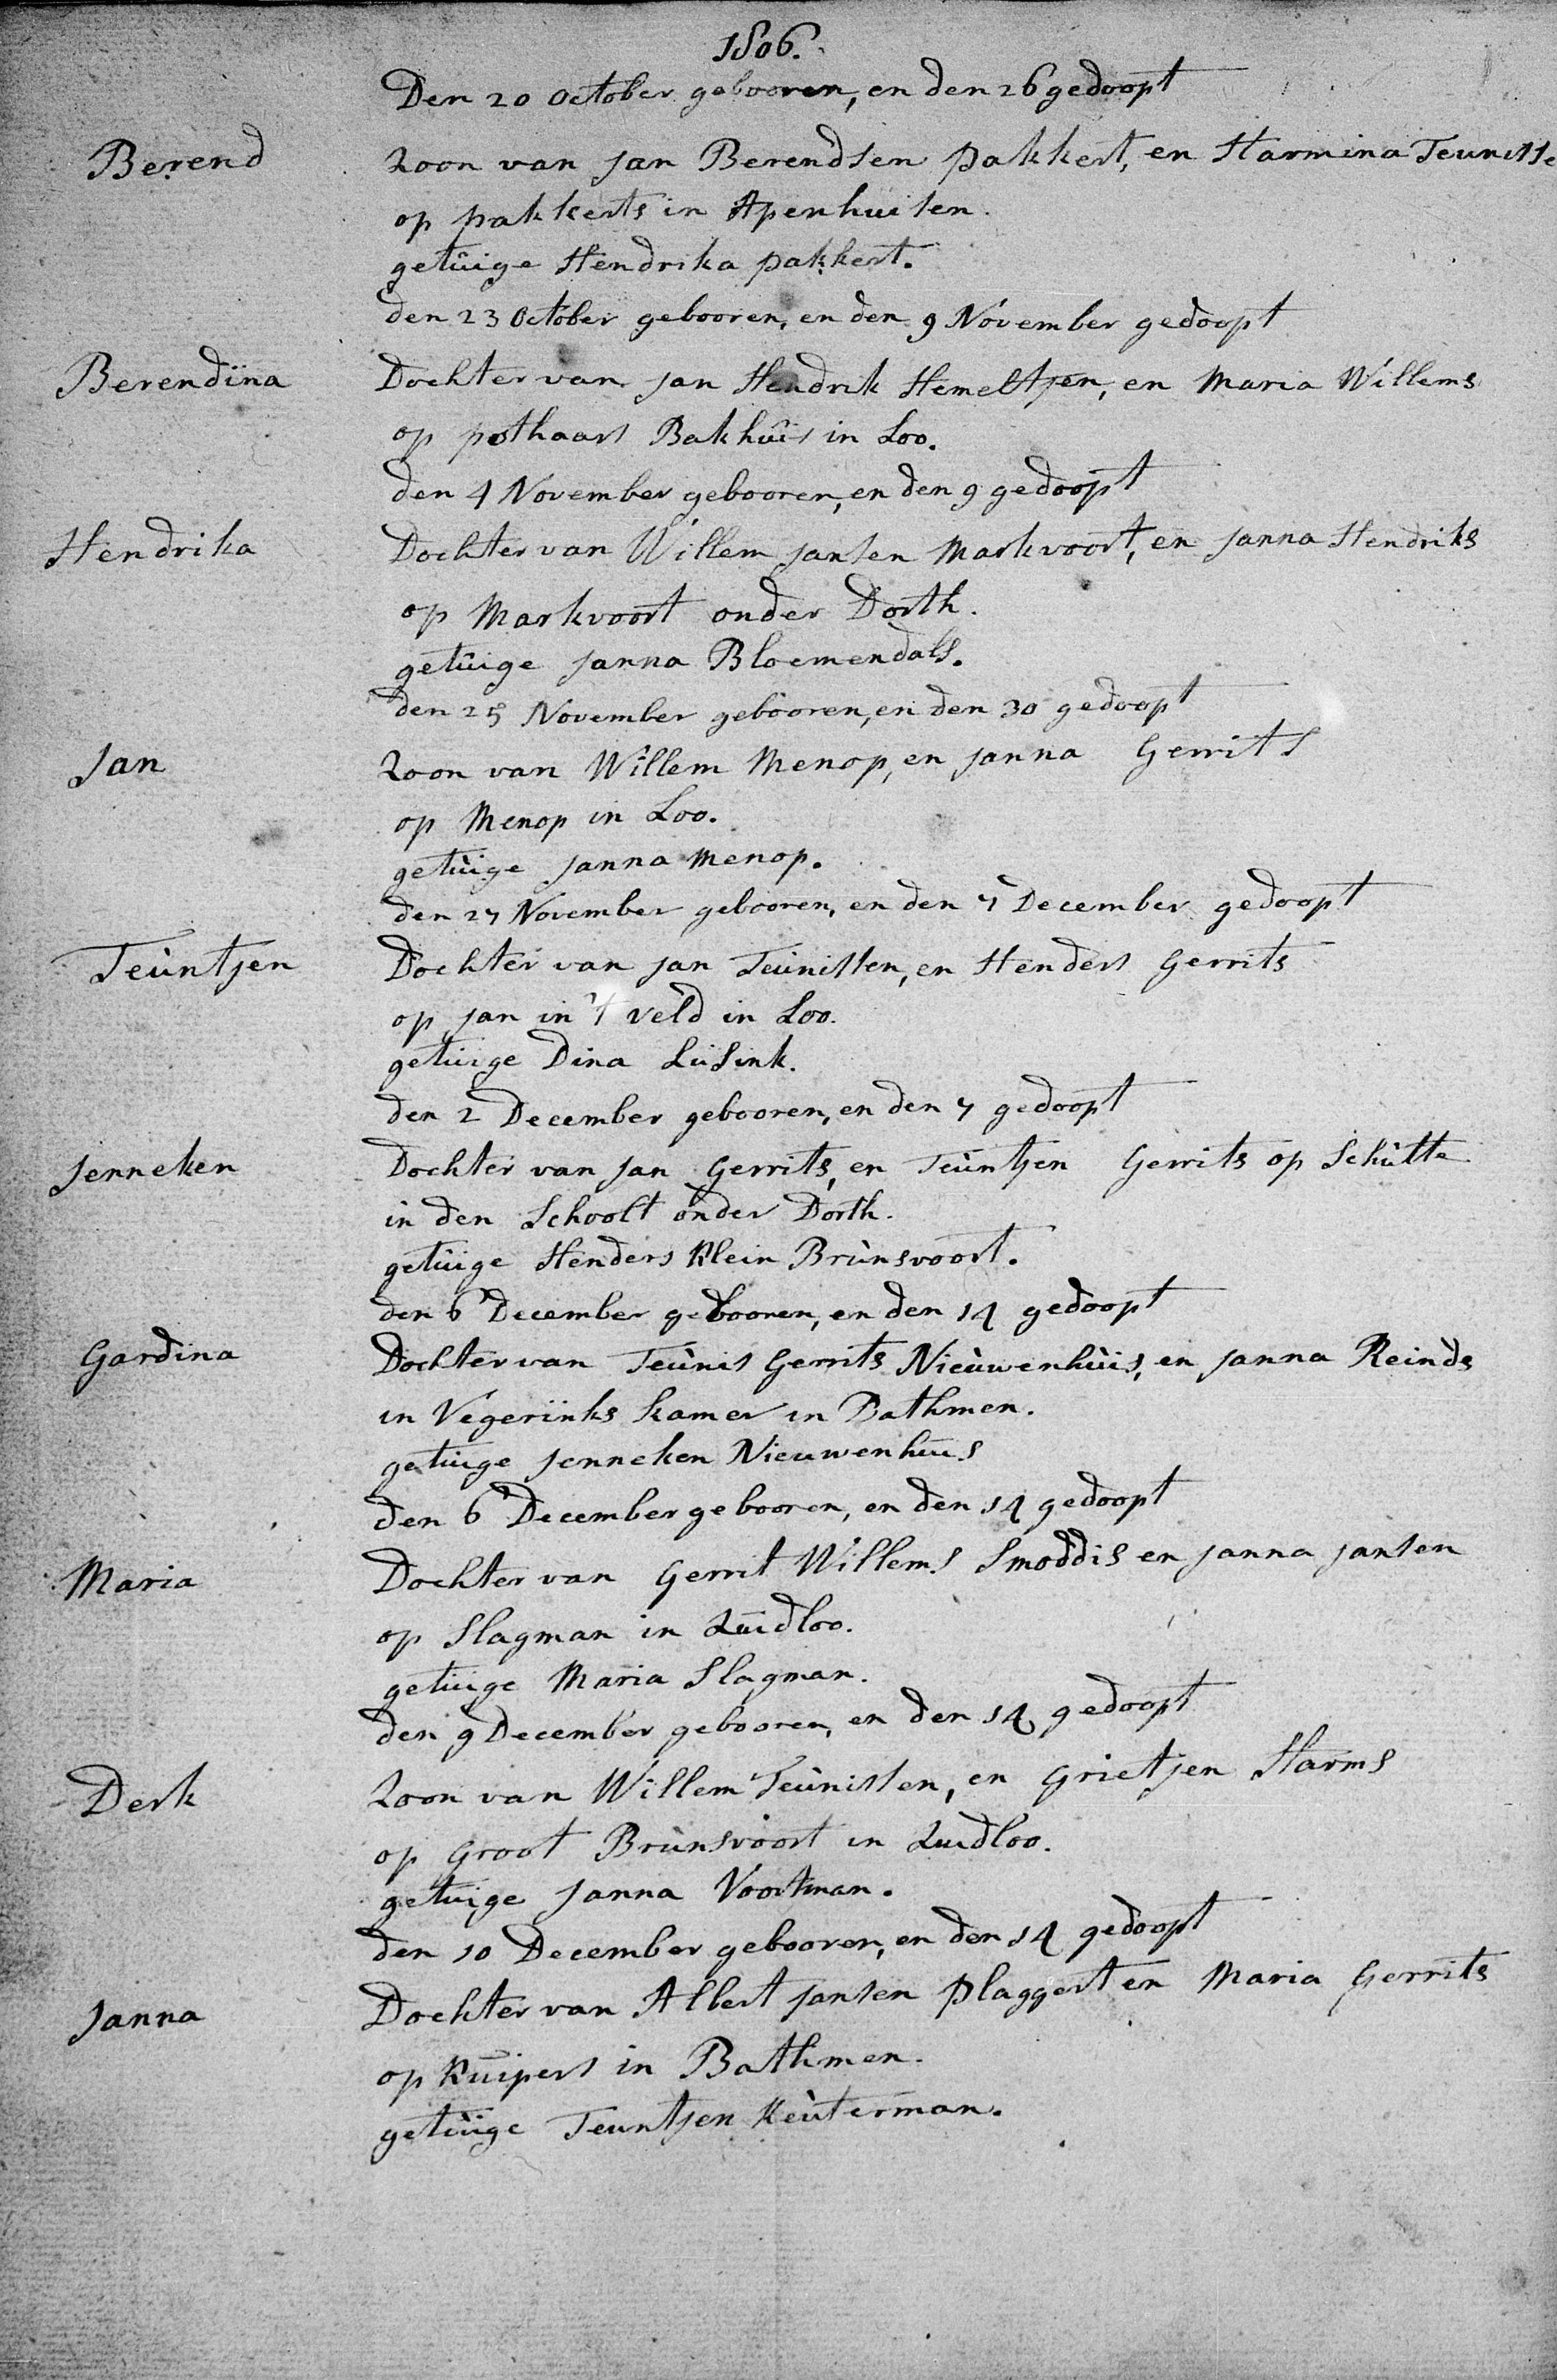 1806.
Den 20 October gebooren, en den 26 gedoopt
Berend Zoon van Jan Berendsen Pakkert, en Harmina Teunisse
op Pakkerts in Apenhuisen.
getuige Hendrika Pakkert.
den 23 October gebooren, en den 9 November gedoopt
Berendina Dochter van Jan Hendrik Hemeltjen, en Maria Willems
op Pothaars Bakhuis in Loo.
den 4 November gebooren, en den 9 gedoopt
Hendrika Dochter van Willem Jansen Markvoort, en Janna Hendriks
op Markvoort onder Dorth.
getuige Janna Bloemendals.
den 25 November gebooren, en den 30 gedoopt
Jan Zoon van Willem Menop, en Janna Gerrits
op Menop in Loo.
getuige Janna Menop.
den 27 November gebooren, en den 7 December gedoopt
Teuntjen Dochter van Jan Teunissen, en Henders Gerrits
op Jan in 't veld in Loo.
getuige Dina Lusink.
den 2 December gebooren, en den 7 gedoopt
Jenneken Dochter van Jan Gerrits, en Teuntjen Gerrits op Schutte
in den Schoolt onder Dorth.
getuige Henders Klein Brunsvoort.
den 6 December gebooren, en den 14 gedoopt
Gardina Dochter van Teunis Gerrits Nieuwenhuis, en Janna Reinds
in Vegerinks kamer in Bathmen.
getuige Jenneken Nieuwenhuis
den 6 December gebooren, en den 14 gedoopt
Maria Dochter van Gerrit Willems Smoddis en Janna Jansen
op Slagman in Zuidloo.
getuige Maria Slagman.
den 9 December gebooren, en den 14 gedoopt
Derk Zoon van Willem Teunissen, en Grietjen Harms
op Groot Brunsvoort in Zuidloo.
getuige Janna Voortman.
den 10 December gebooren, en den 14 gedoopt
Janna Dochter van Albert Jansen Plaggert en Maria Gerrits
op Kuipers in Bathmen.
getuige Teuntjen Keuterman.